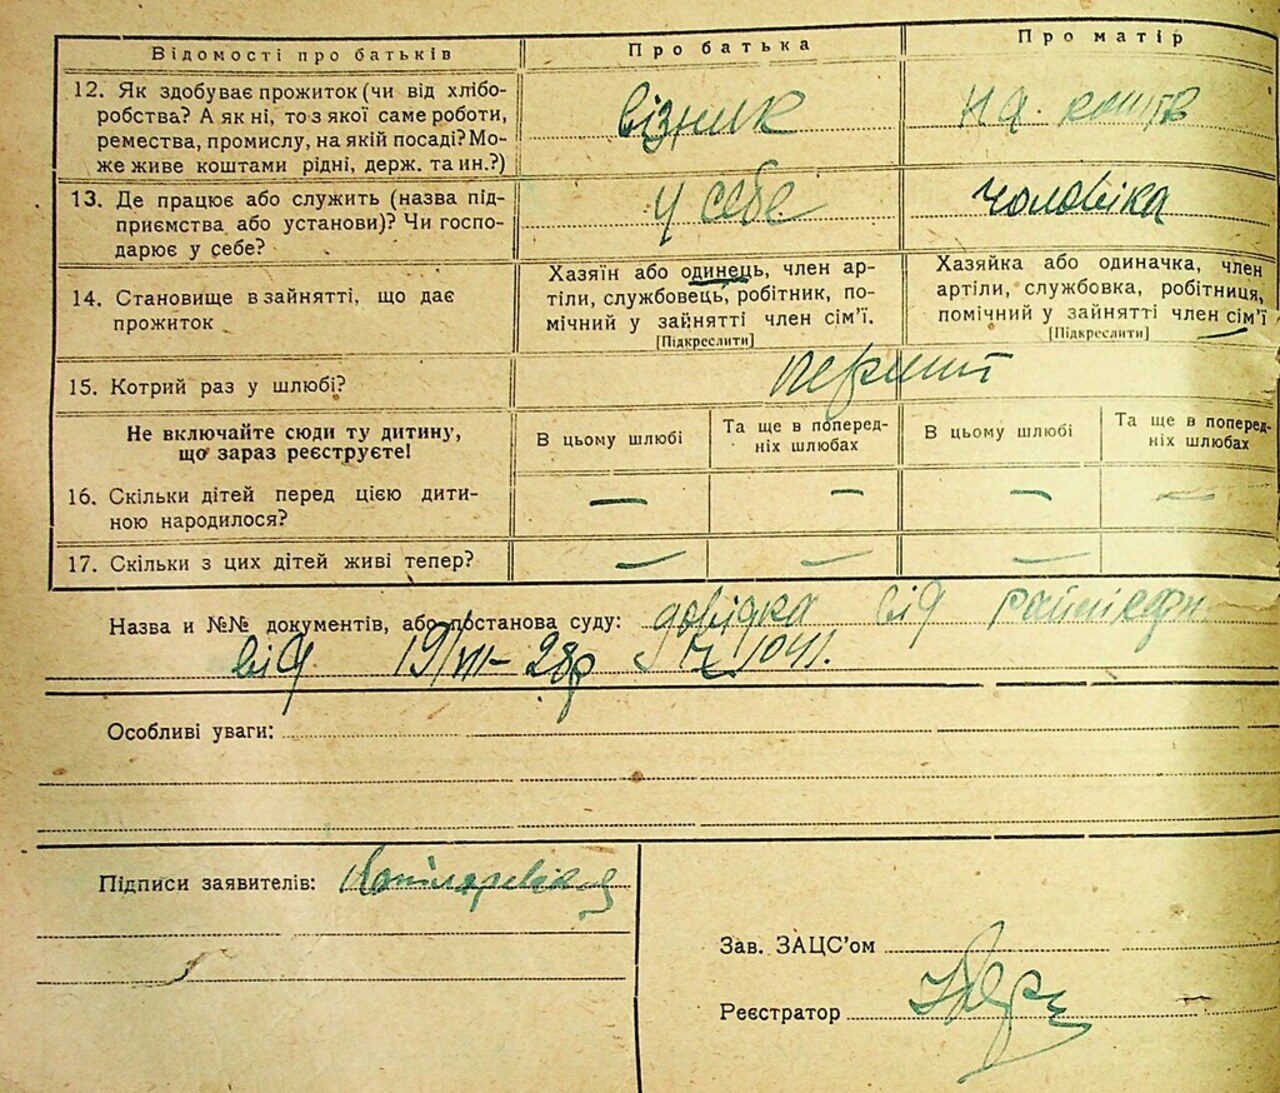 Відомості про батьків
Про батька
Про матір
12. Як здобуває прожиток (чи від хлібо-
робства? А як ні, то з якої саме роботи,
ремества, промислу, на якій посаді? Мо-
же живе коштами рідні, держ. та ин.?)
візник
на кошти
13. Де працює або служить (назва під-
приємства або установи)? Чи госпо-
дарює у себе?
у себе
чоловіка
14. Становище в зайнятті, що дає
прожиток
Хазяїн або одинець, член ар-
тіли, службовець, робітник, по-
мічний у зайнятті член сім'ї.
[Підкреслити]
Хазяйка або одиначка, член
артіли, службовка, робітниця,
помічний у зайнятті член сім'ї
[Підкреслити]
15. Котрий раз у шлюбі?
перший
Не включайте сюди ту дитину,
що зараз реєструєте!
В цьому шлюбі
Та ще в поперед-
ніх шлюбах
В цьому шлюбі
Та ще в поперед-
ніх шлюбах
16. Скільки дітей перед цією дити-
ною народилося?
— — — —
17. Скільки з цих дітей живі тепер?
— — —
Назва и №№ документів, або постанова суду: довідка від
від 19/VII- 28р 1041.
Особливі уваги:
Підписи заявителів:
Зав. ЗАЦС'ом
Реєстратор